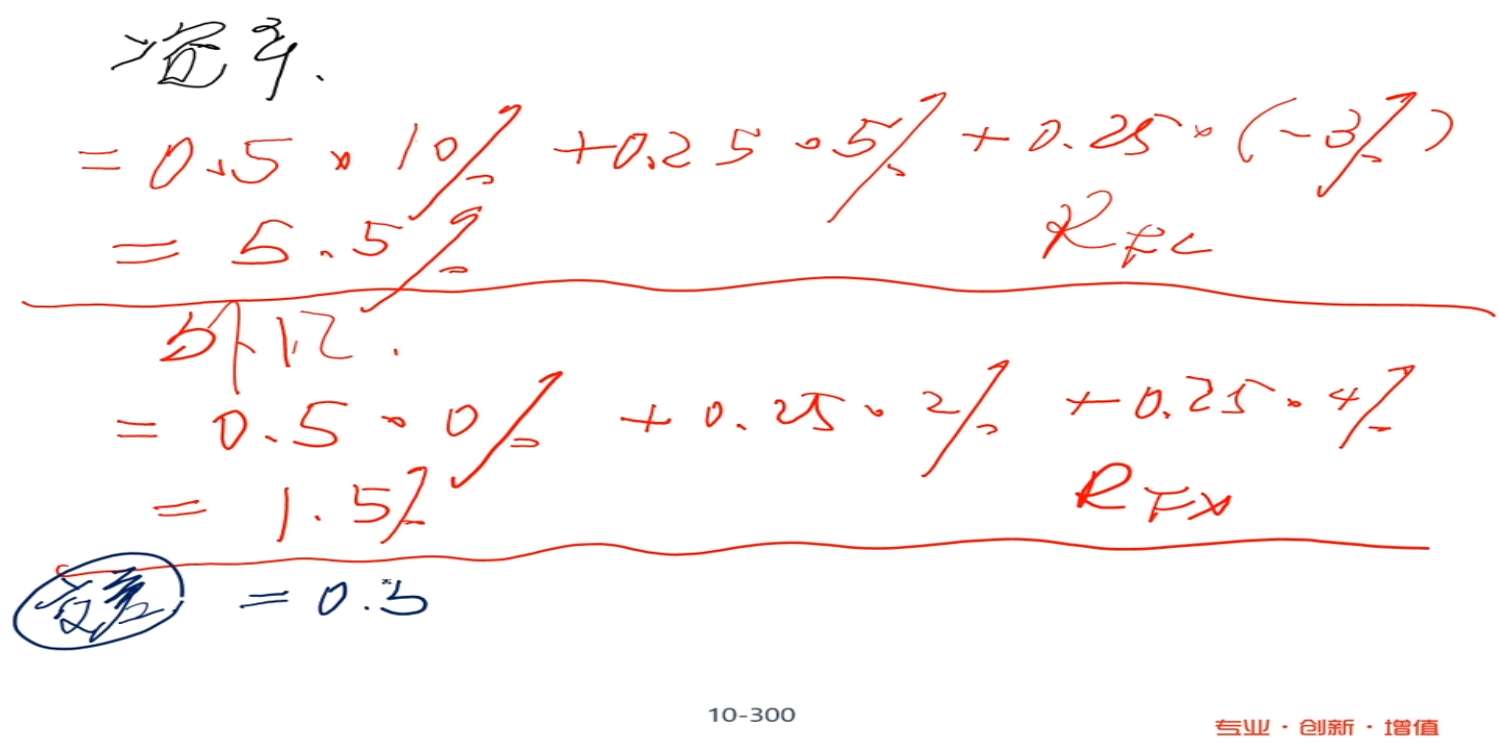 资产.
= 0.5 × 10% + 0.25 × 5% + 0.25 × (-3%)
= 5.5%
R FC
外汇.
= 0.5 × 0% + 0.25 × 2% + 0.25 × 4%
= 1.5%
R FX
= 0.5
10-300
专业·创新·增值